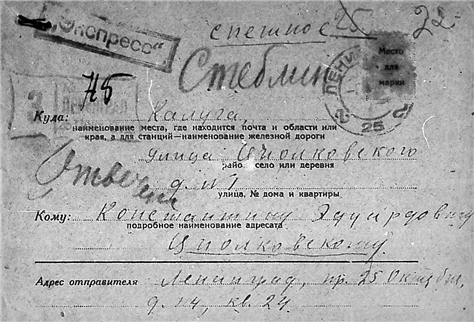 „Экспресс“
спешное 25 22-
Стеблин
Место
для
марки
ЛЕНИ
25
Н5
Куда: Калуга,
наименование места, где находится почта и области или
края, а для станций—наименование железной дороги
улица Циолковского
район село или деревня
д. №1
улица, № дома и квартиры
Отвечен
Кому: Константину Эдуардовичу
подробное наименование адресата
Циолковскому.
Адрес отправителя Ленинград, пр. 25 Октября,
д. 114, кв. 24.